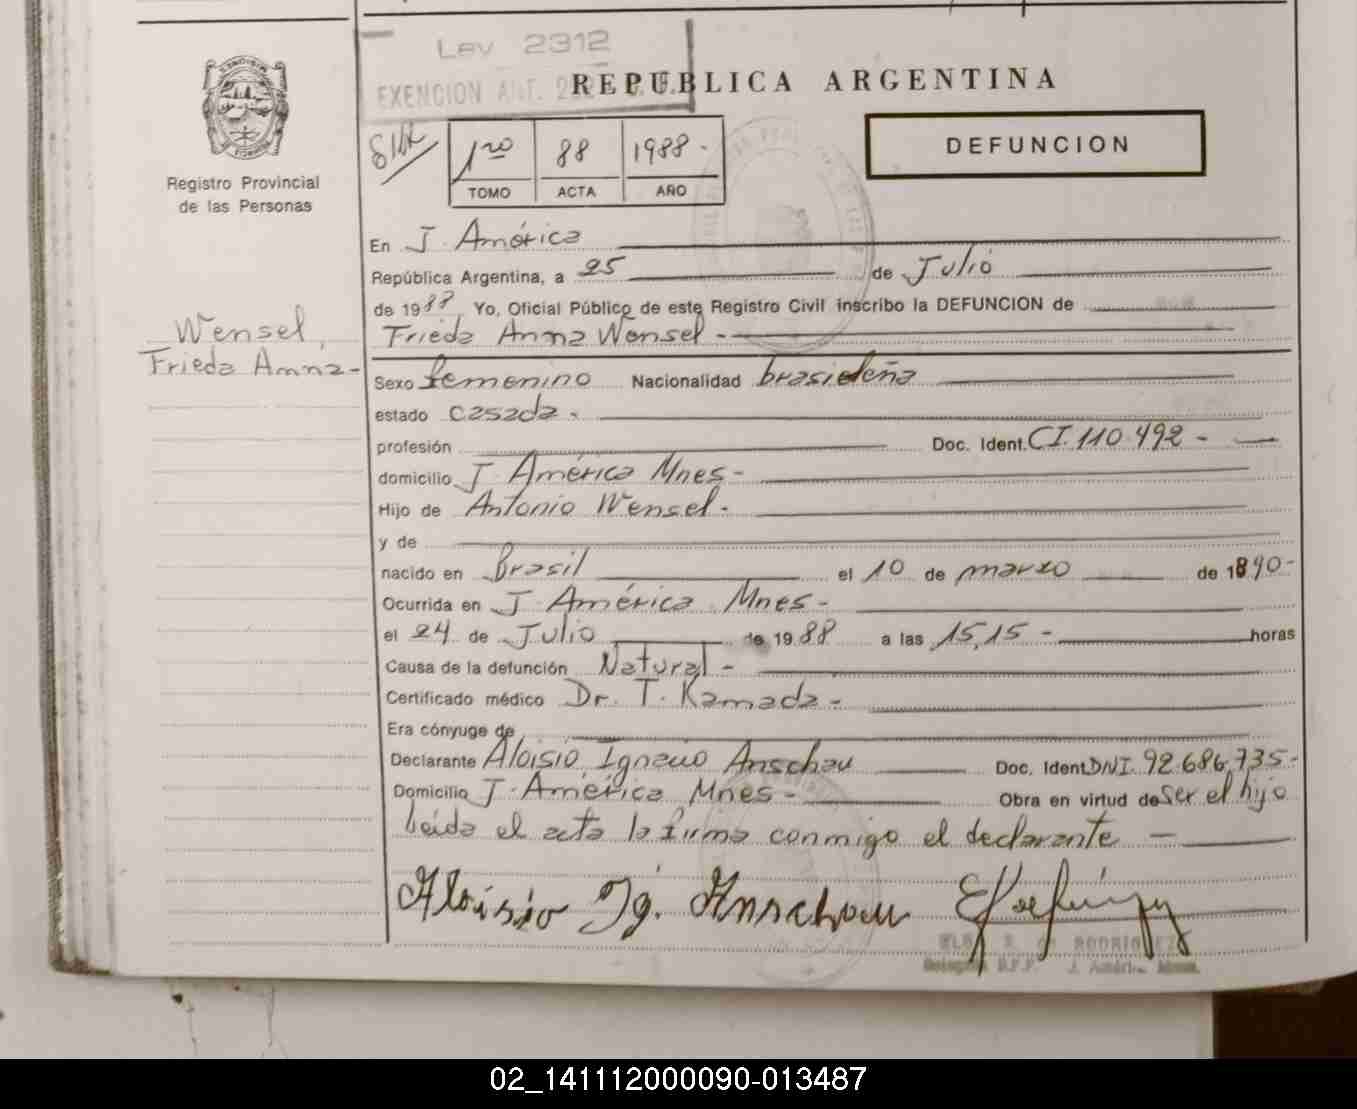 Ley 2312
EXENCION ART.
REPUBLICA ARGENTINA
1ro 88 1988-
TOMO ACTA AÑO
DEFUNCION
Registro Provincial
de las Personas
En J. América
República Argentina, a 25 de Julio
de 1988 Yo, Oficial Público de este Registro Civil inscribo la DEFUNCION de
Frieda Anna Wensel -
Wensel,
Frieda Anna-
Sexo femenino Nacionalidad brasileña
estado casada -
profesión Doc. Ident. CI.110.492 -
domicilio J. América Mnes -
Hijo de Antonio Wensel -
y de
nacido en Brasil el 10 de marzo de 1890-
Ocurrida en J. América Mnes -
el 24 de Julio de 1988 a las 15,15 - horas
Causa de la defunción Natural -
Certificado médico Dr. T. Kamada -
Era cónyuge de
Declarante Aloisio Ignacio Anschau Doc. Ident DNI. 92.686.735-
Domicilio J. América Mnes - Obra en virtud de Ser el hijo
leída el acta la firma conmigo el declarante —
Aloisio Ig. Anschau
RODRIGUEZ
J. América
02_141112000090-013487